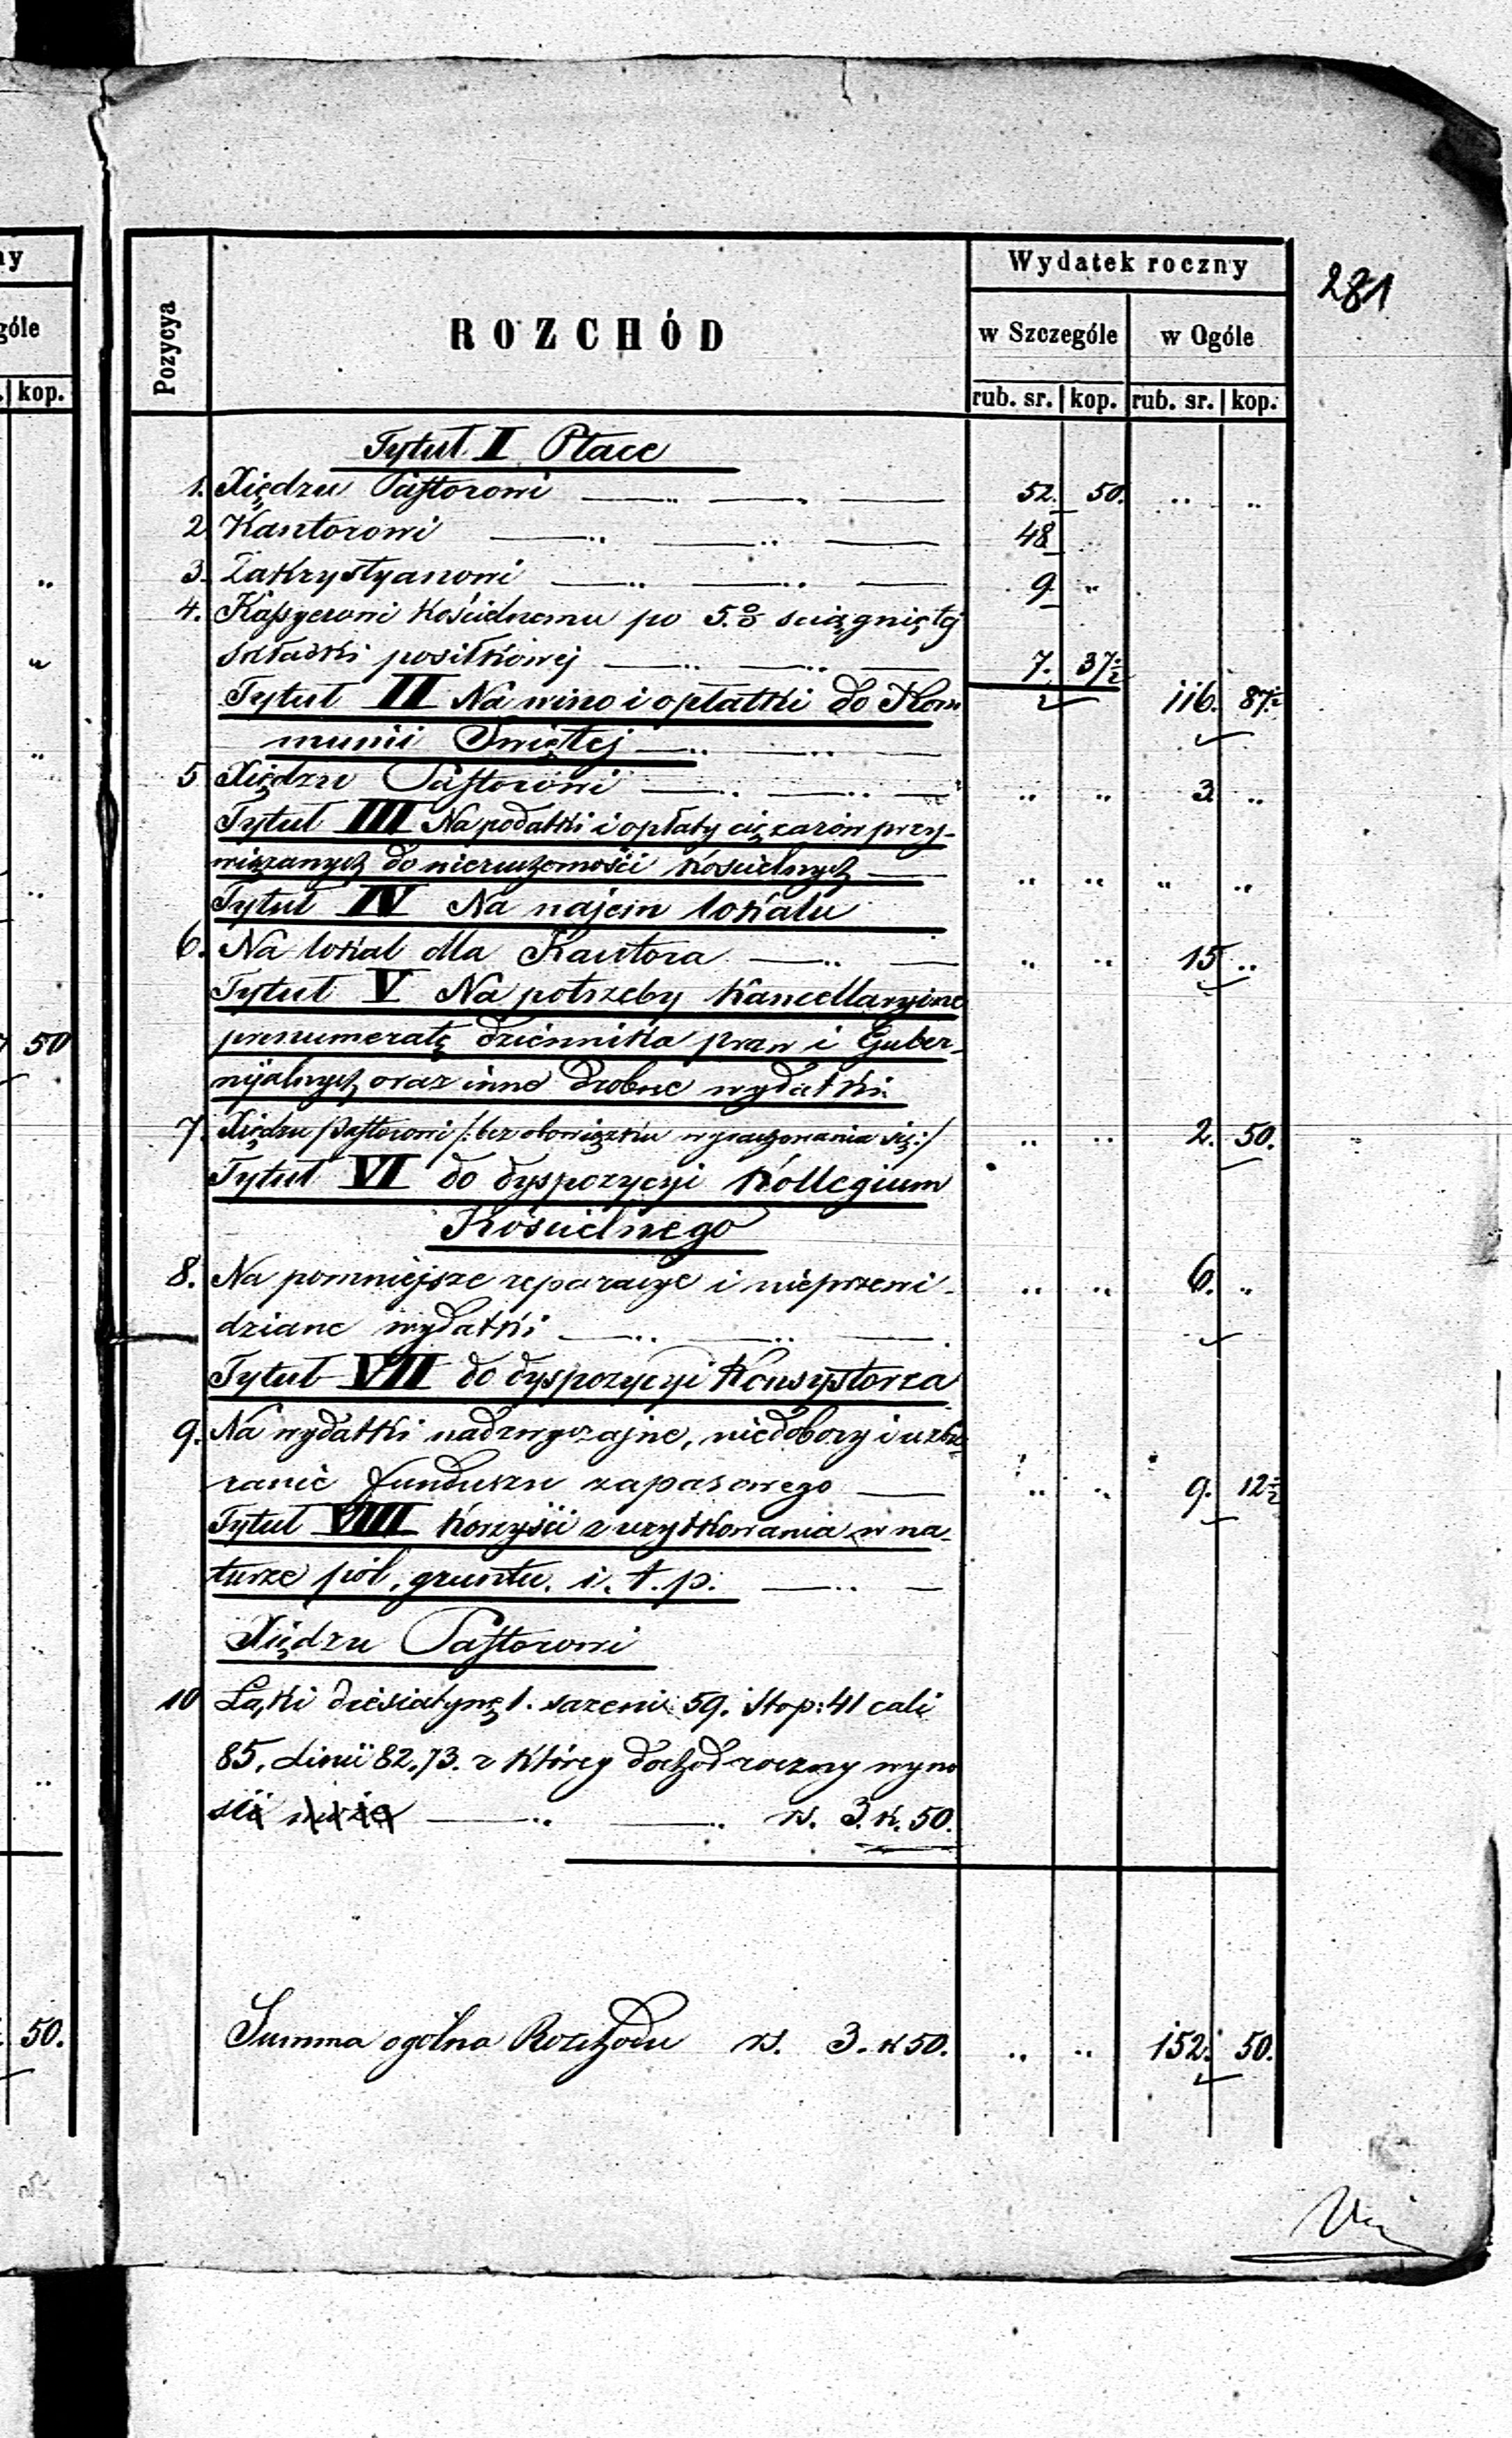 ny
góle
kop.
50
50.
281
Pozycya
ROZCHÓD
Wydatek roczny
w Szczególe
w Ogóle
rub. sr. kop. rub. sr. kop.
Tytuł I Płace
1. Xiędzu Pastorowi 52. 50. " "
2 Kantorowi 48
3. Zakrystyanowi 9 "
4. Kassyerowi Kościelnemu po 5.% sciągniętej
składki posiłkowej 7. 37½
116. 87½
Tytuł II Na wino i opłatki do Kom
munii Swiętej
5 Xiędzu Pastorowi " " 3 "
Tytuł III Na podatki i opłaty ciężarów przy-
wiązanych do nieruchomości Kościelnych " " " "
Tytuł IV Na najem lokalu
6. Na lokal dla Kantora " " 15 "
Tytuł V Na potrzeby Kancellaryjne
prenumeratę dziennika praw i Guber-
nijalnych oraz inne drobne wydatki.
7. Xiędzu Pastorowi /:bez obowiązku wyrachowania się:/ " " 2. 50.
Tytuł VI do dyspozycyi Kollegium
Kościelnego
8. Na pomniejsze reparacye i nieprzewi- " " 6. "
dziane wydatki
Tytuł VII do dyspozycyi Konsystorza
9. Na wydatki nadzwyczajne, niedobory i uzbie-
ranie funduszu zapasowego " " 9. 12½
Tytuł VIII Korzyści z uzytkowania w na-
turze pól, gruntu, i. t. p.
Xiędzu Pastorowi
10 Łąki diesiatynę 1. sazeni 59. stop: 41 cali
85, Linii 82,73. z Której dochod roczny wyno
si rs. 3. k. 50.
Summa ogólna Rozchodu rs. 3. k 50. " " 152. 50.